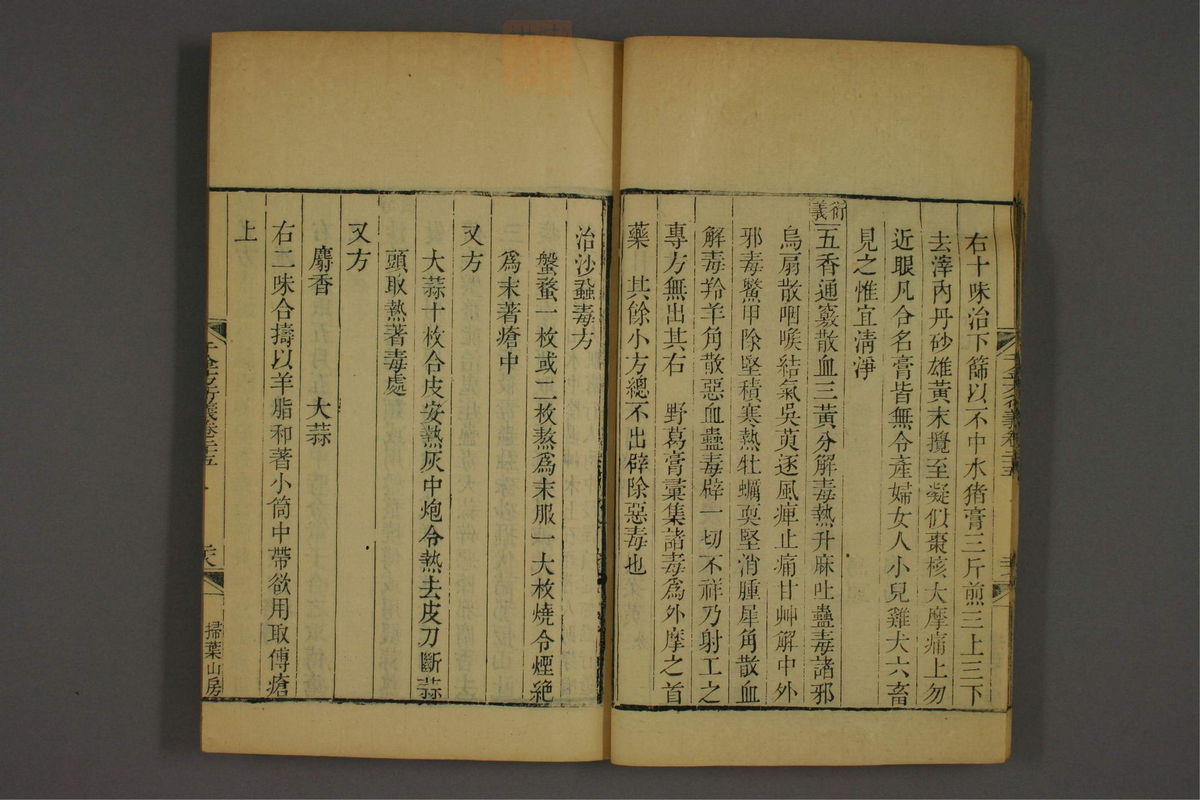 右十味治下篩以不中水猪膏三斤煎三上三下
去滓內丹砂雄黃末攪至凝似棗核大摩痛上勿
近眼凡合名膏皆無令產婦女人小兒雞犬六畜
見之惟宜清淨
衍義
五香通竅散血三黃分解毒熱升麻吐蠱毒諸邪
烏扇散咽喉結氣吳茰逐風痺止痛甘艸解中外
邪毒鱉甲除堅積寒熱牡蠣耎堅消腫犀角散血
解毒羚羊角散惡血蠱毒辟一切不祥乃射工之
專方無出其右　野葛膏彙集諸毒為外摩之首
藥　其餘小方總不出辟除惡毒也
治沙蝨毒方
盤蝥一枚或二枚熬為末服一大枚燒令煙絕
為末著瘡中
又方
大蒜十枚合皮安熱灰中炮令熱去皮刀斷蒜
頭取熱著毒處
又方
麝香　大蒜
右二味合擣以羊脂和著小筒中帶欲用取傅瘡
上
千金方衍義卷二十五
掃葉山房